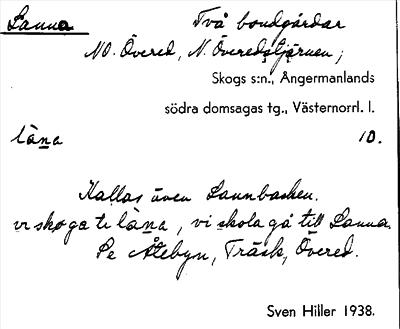 Lanna Två bondgårdar
NO. Övered, N. Överedstjärnen;
Skogs s:n., Ångermanlands
södra domsagas tg., Västernorrl. l.
làna 10.
Kallas även Lannbacken.
vi skoga te làna, vi skola gå till Lanna.
Se Åtebyn, Träsk, Övered.
Sven Hiller 1938.